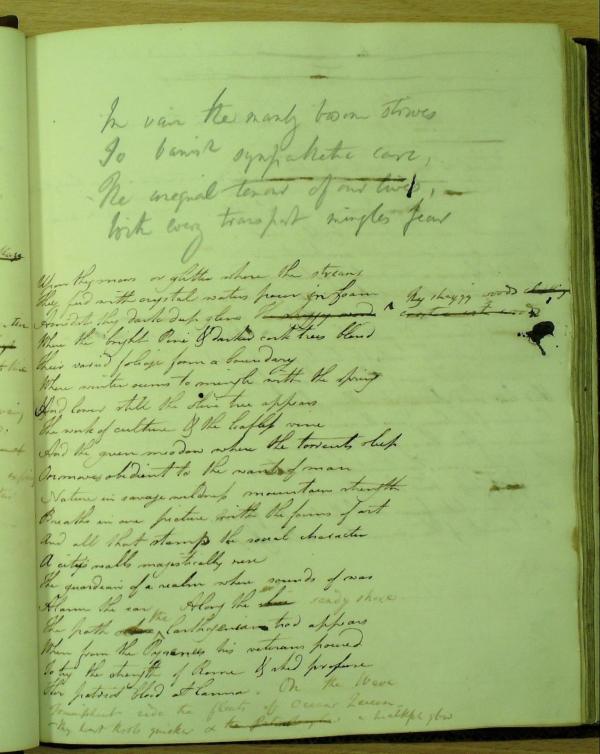 In vain the manly bosom strives
To banish sympathetic care,
The unequal tenour of our lives,
With every transport mingles fear
Upon thy snows or glitter where the streams
They feed with crystal waters pour in foam
Amidst thy dark deep glens thy shaggy woods ^ thy shaggy woods
Where the bright Pine & darker cork trees blend
Their varied foliage form a boundary
Where winter seems to mingle with the spring
And lower still the olive tree appears
The work of culture & the leafless vine
And the green meadow where the torrents sleep
Or moves obedient to the wants of man
Nature in savage wildness mountains strength
Breaths in one picture with the forms of art
And all that stamps the social character
A citys walls majestically rise
The guardian of a realm where sounds of war
Alarm the ear Along the reedy shore
The path the Carthagenean trod appears
When from the Pyrenees his veterans poured
To try the strength of Rome & shed profuse
Her patriot blood at Canna. On the Wave
Triumphant ride the fleets of Ocean Queen
My heart throbs quicker & a healthful glow